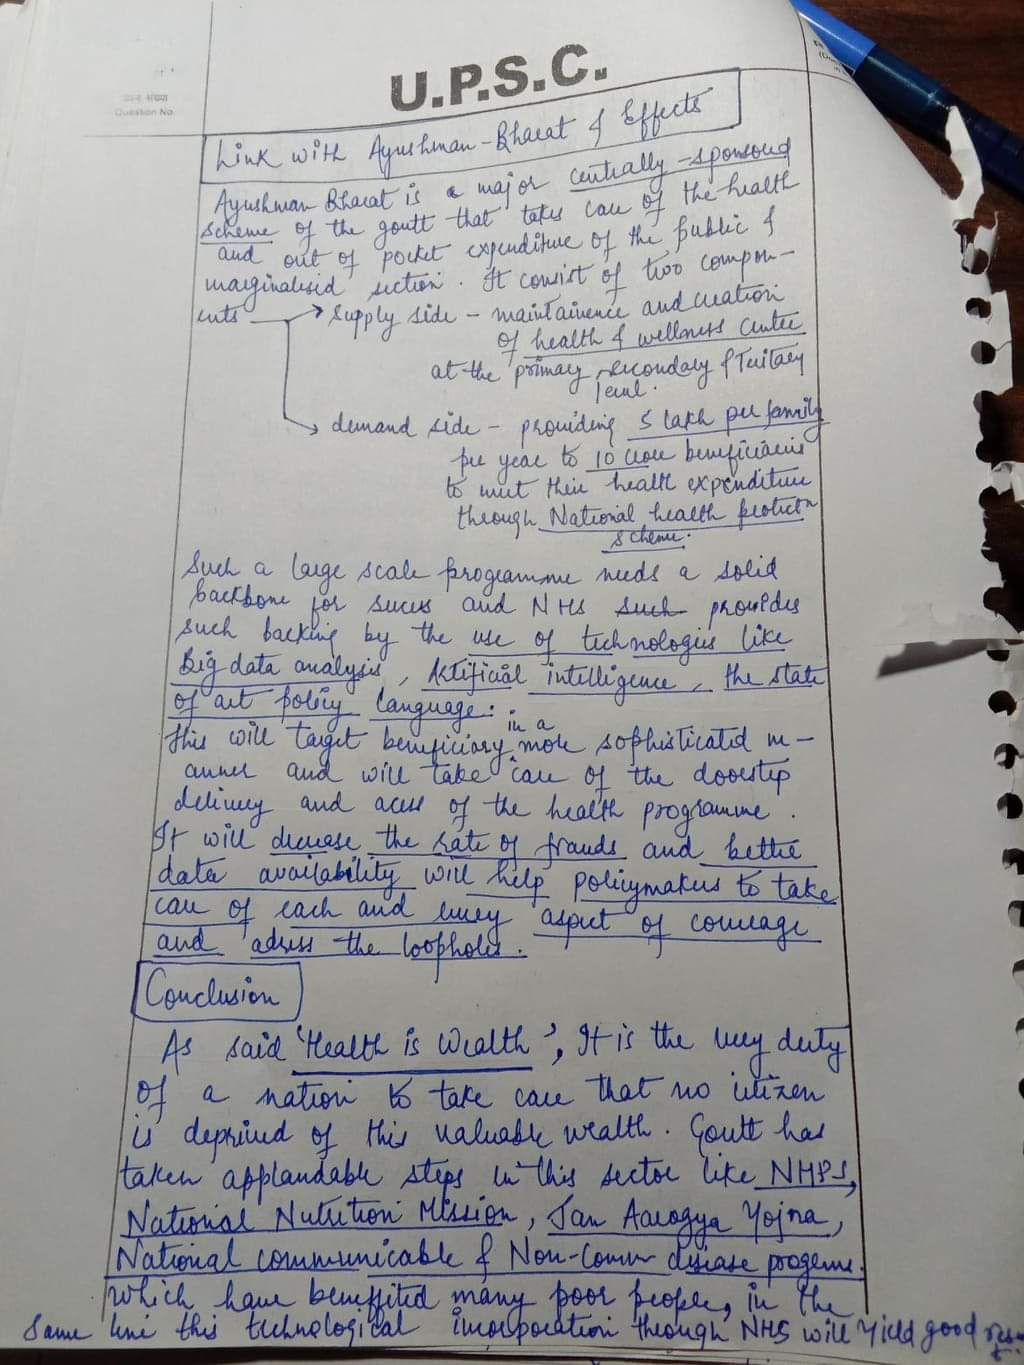 U.P.S.C.
Question No.
Link with Ayushman-Bharat & Effects
Ayushman Bharat is a major centrally-sponsored
scheme of the govtt that takes care of the health
and out of pocket expenditure of the public &
marginalised section. It consist of two compon-
ents → Supply side - maintainence and creation
of health & wellness center
at the primary, secondary & Teritary
level.
→ demand side - providing 5 lakh per family
per year to 10 crore beneficiaries
to meet their health expenditure
through National health protectn
scheme.
Such a large scale programme needs a solid
backbone for sucess and NHS such provides
such backing by the use of technologies like
Big data analysis, Artificial intelligence, the state
of art policy language.
This will target beneficiary in a more sophisticated m-
anner and will take care of the doorstep
delivery and acess of the health programme.
It will decrease the rate of frauds and better
data availability will help policymakers to take
care of each and every aspect of coverage
and adress the loopholes.
Conclusion
As said 'Health is Wealth', It is the very duty
of a nation to take care that no citizen
is deprived of this valuable wealth. Govtt has
taken applaudable steps in this sector like NHPS,
National Nutrition Mission, Jan Aarogya Yojna,
National communicable & Non-Comm disease programe.
which have benefited many poor people, in the
Same line this technological incorporation through NHS will yield good